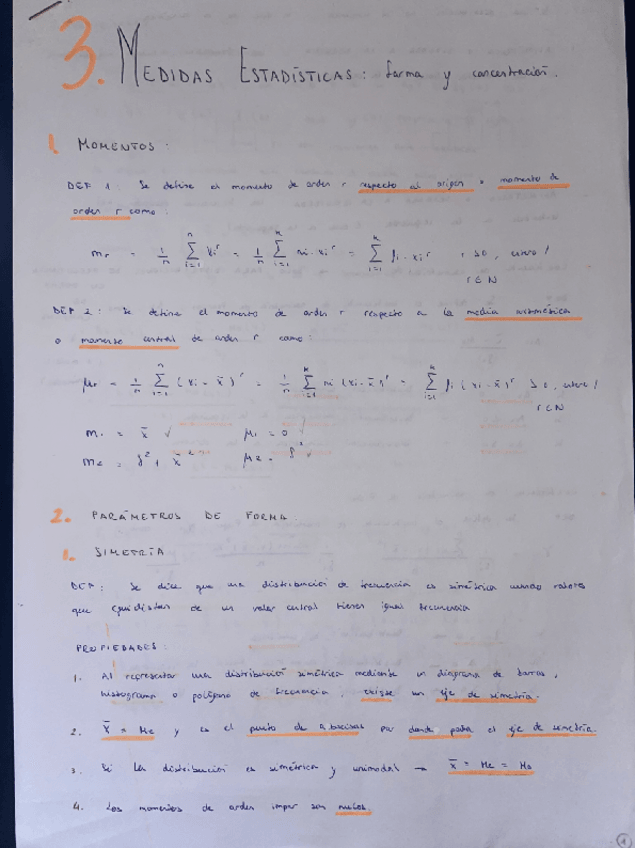 3. MEDIDAS ESTADÍSTICAS: forma y concentración.
1. MOMENTOS:
DEF 1: Se define el momento de orden r respecto al origen o momento de
orden r como:
mr = 1/n Σ(i=1→n) xi^r = 1/n Σ(i=1→k) ni·xi^r = Σ(i=1→k) fi·xi^r, r≥0, entero/
r∈N
DEF 2: Se define el momento de orden r respecto a la media aritmética
o momento central de orden r como:
μr = 1/n Σ(i=1→n) (xi - x̄)^r = 1/n Σ(i=1→k) ni (xi - x̄)^r = Σ(i=1→k) fi (xi - x̄)^r ≥0, entero/
r∈N
m1 = x̄ √ μ1 = 0 √
m2 = S² + x̄² μ2 = S² √
2. PARÁMETROS DE FORMA
1. SIMETRÍA
DEF: Se dice que una distribución de frecuencia es simétrica cuando valores
que equidistan de un valor central tienen igual frecuencia
PROPIEDADES:
1. Al representar una distribución simétrica mediante un diagrama de barras,
histograma o polígono de frecuencia, existe un eje de simetría.
2. x̄ = Me y es el punto de abscisas por donde pasa el eje de simetría.
3. Si la distribución es simétrica y unimodal → x̄ = Me = Mo
4. Los momentos de orden impar son nulos.
1